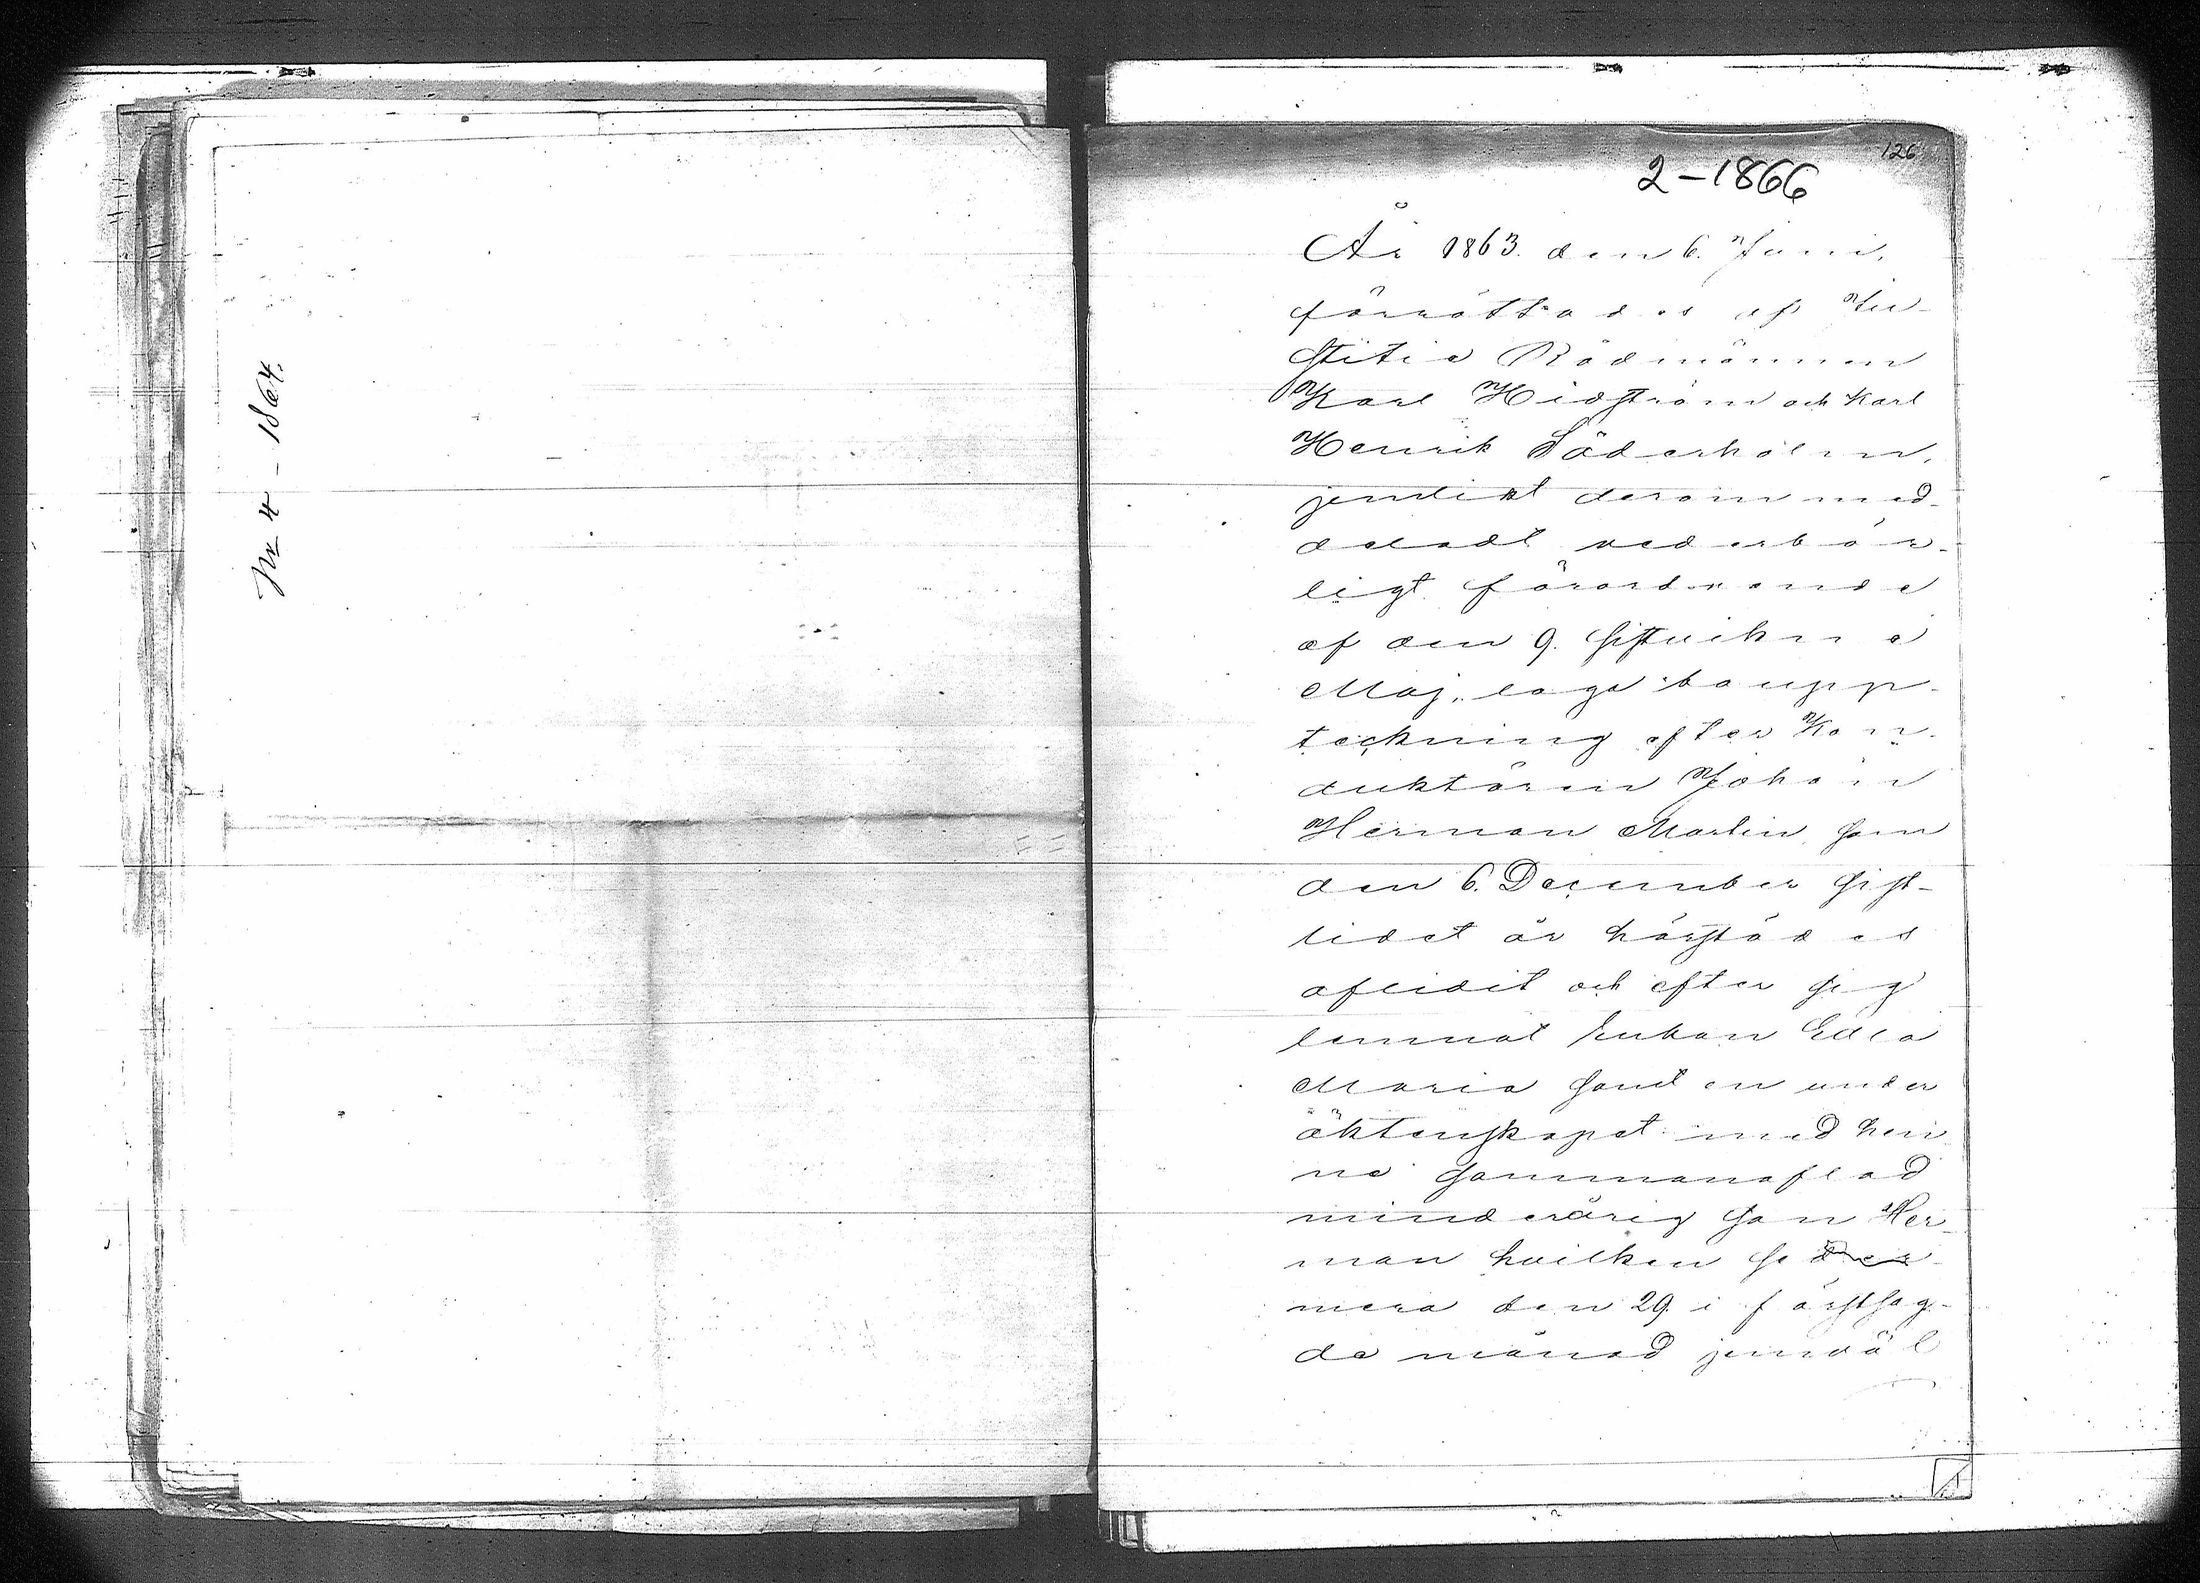 Nr 4 - 1864.
126
2-1866
År 1863. den 6. Juni,
förrättades af Ju-
stitie Rådmännen
Karl Hidström och Karl
Henrik Söderholm,
jemlikt derom med-
deladt vederbör-
ligt förordnande
af den 9. sistvikne
Maj, laga boupp-
teckning efter Kon-
duktören Johan
Herman Martin, som
den 6. December sist-
lidet år härstädes
aflidit och efter sig
lemnat Enkan Edla
Maria samt en under
äktenskapet med hen
ne sammanaflad
minderårig son Her-
man hvilken seder-
mera den 29. i förstsag-
de månad jemväl